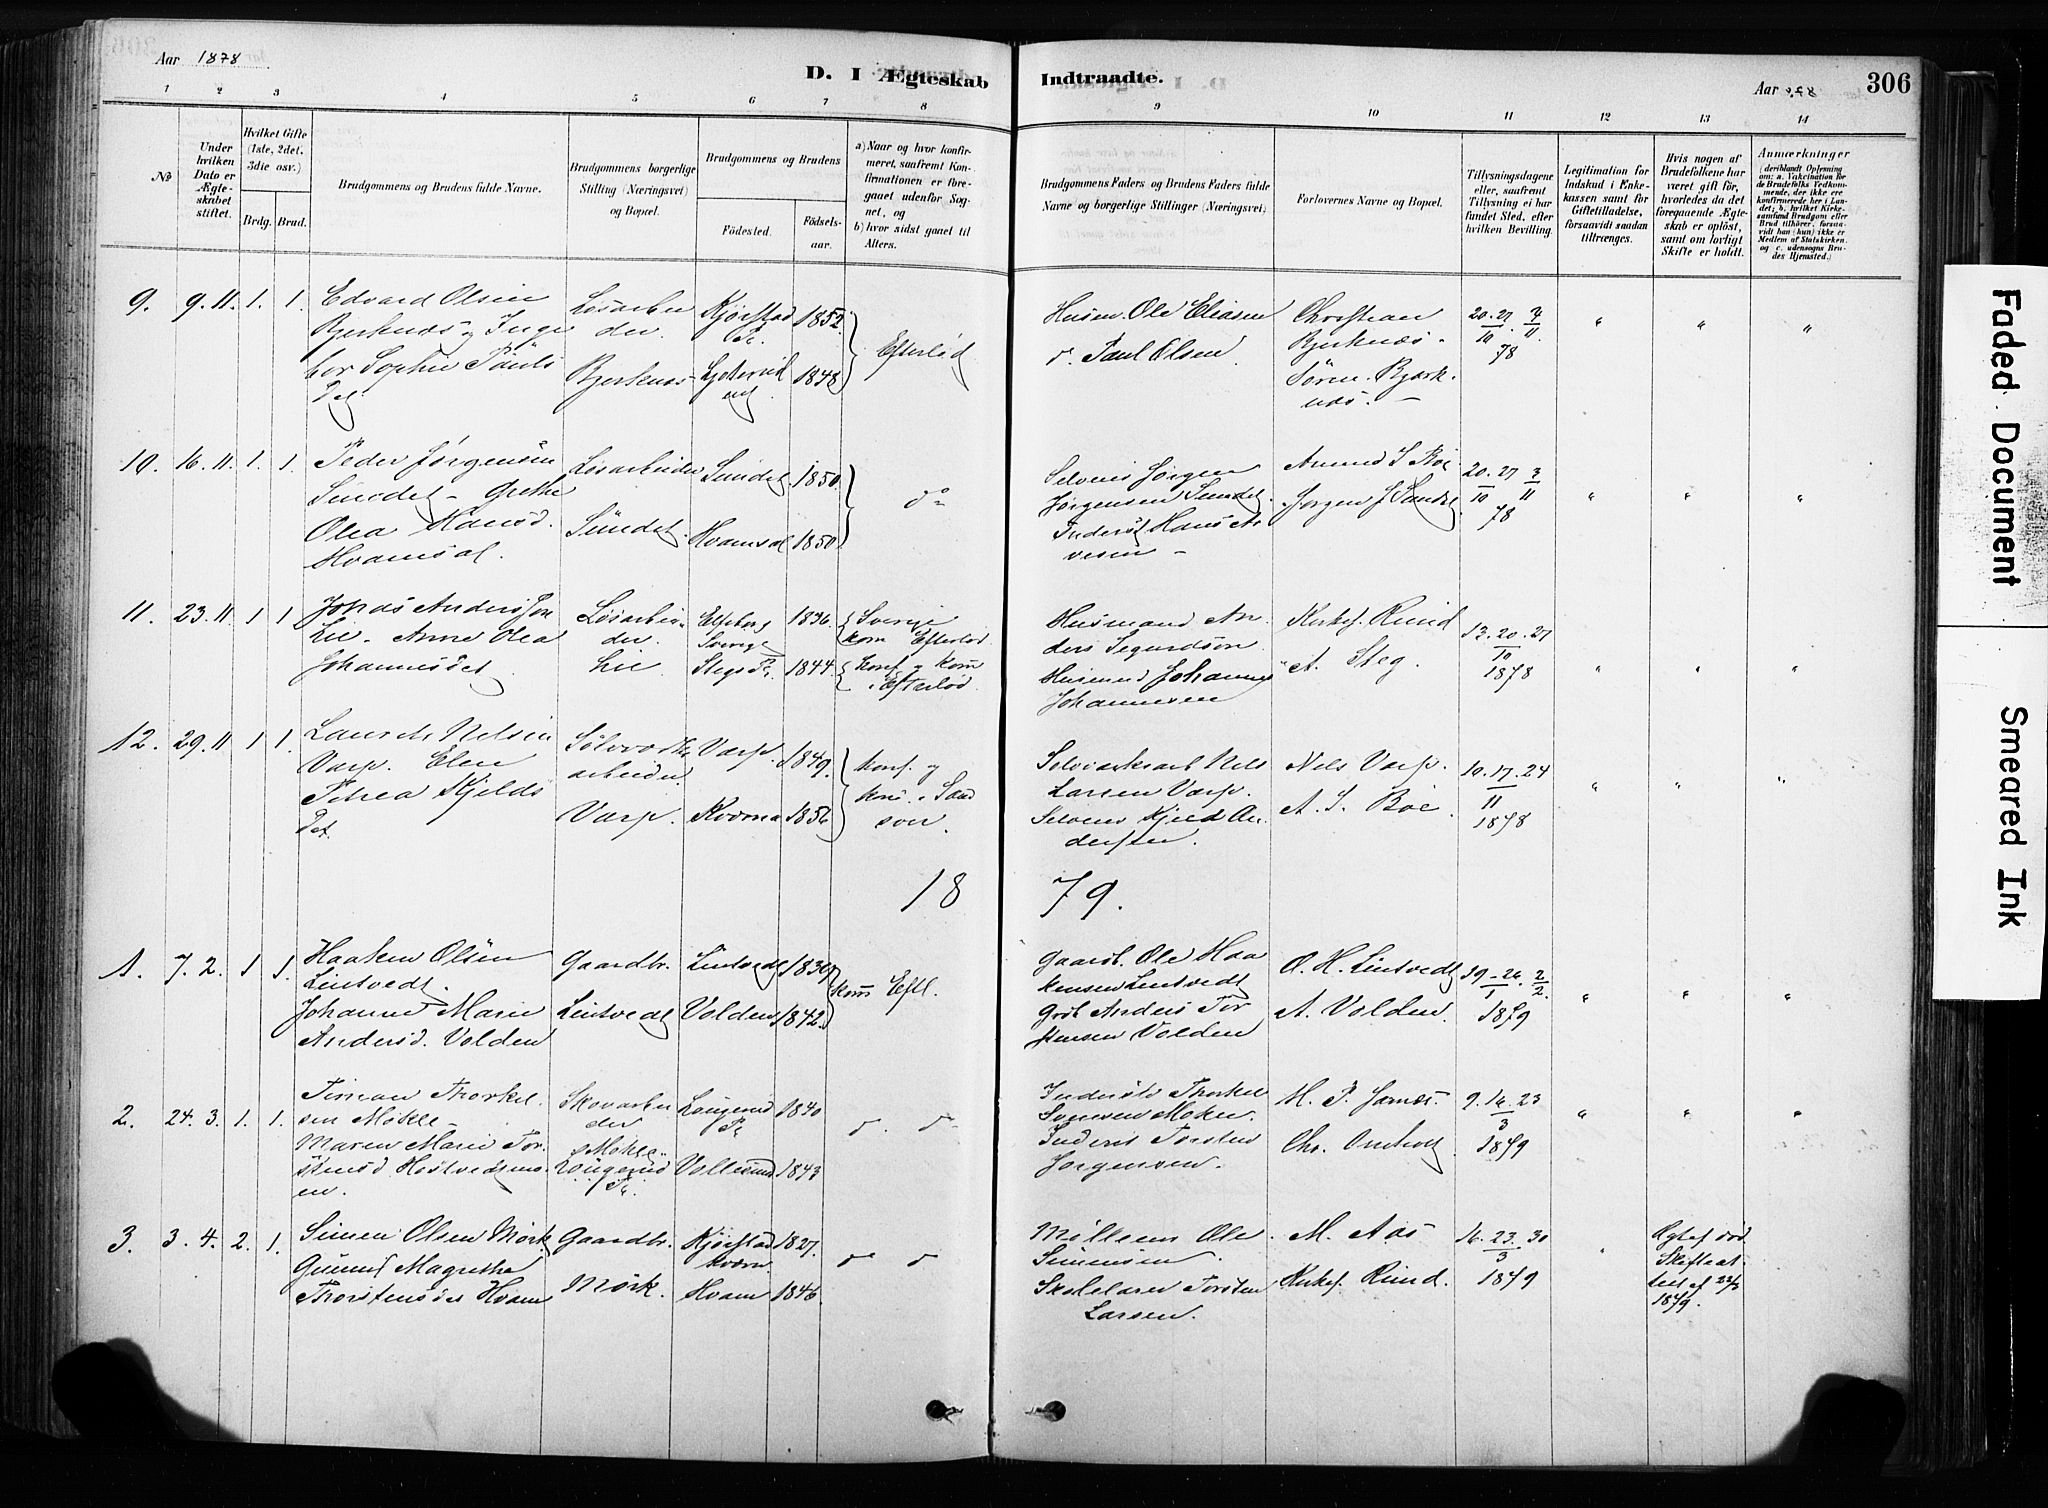 Aar 1878
D. I Ægteskab Indtraadte.
Aar 878
306
1 2 3 4 5 6 7 8 9 10 11 12 13 14
No
Under hvilken Dato er Ægteskabet stiftet.
Hvilket Gifte (1ste, 2det, 3die osv.)
Brdg. Brud.
Brudgommens og Brudens fulde Navne.
Brudgommens borgerlige Stilling (Næringsvei) og Bopæl.
Brudgommens og Brudens
Födested.
Födselsaar.
a) Naar og hvor konfirmeret, saafremt Konfirmationen er foregaaet udenfor Sognet, og
b) hvor sidst gaaet til Alters.
Brudgommens Faders og Brudens Faders fulde Navne og borgerlige Stillinger (Næringsvei)
Forlovernes Navne og Bopæl.
Tillysningsdagene eller, saafremt Tillysning ei har fundet Sted, efter hvilken Bevilling.
Legitimation for Indskud i Enkekassen samt for Giftetilladelse, forsaavidt saadan tiltrænges.
Hvis nogen af Brudefolkene har været gift för, hvorledes da det foregaaende Ægteskab er oplöst, samt om lovligt Skifte er holdt.
Anmærkninger (deriblandt Oplysning om: a. Vakcination for de Brudefolks Vedkommende, der ikke ere konfirmerede her i Landet; b. hvilket Kirkesamfund Brudgom eller Brud tilhörer, forsaavidt han (hun) ikke er Medlem af Statskirken, og c. udensogns Brudes Hjemsted.)
9. 9.11. 1. 1. Edvard Olsen
Bjerknæs og Inge
bor Sophie Pauls
Det.
Løsarbei
der.
Bjerknæs
Kjørstad
1852.
1848
Efterlød
Husm. Ole Eliasen
do. Paul Olsen.
Christian
Bjerknæs.
Søren Bjerk
næs.
20. 27. 3/11
10
78
" " "
10. 16.11. 1. 1. Peder Jørgensen
Sundet Grethe
Olea Hansd.
Hvamsal.
Løsarbeider
Sundet.
Sundet
Hvamsal
1850.
1850.
do
Selveier Jørgen
Jørgensen Sundet.
Inderst Hans
Amund S Bøe
Jørgen J Sundet
20. 27 3/11
10
78
" " "
11. 23.11 1 1 Johas Andersson
Lie. Anne Olea
Johannesdet
Løsarbei
der.
Lie
Elfsborg
Sverige
Stegs
1836.
1844.
Sverige
kom Efterlød
Konf. og kom
i Efterlød.
Husmand An
ders Segurdson
Husmand Johannes
Johannesen
Kirkes. Rund
A. Steg.
13. 20. 27
10
1878
" " "
12. 29.11 1 1. Laurits Nelsen
Varp. Elen
Petrea Kjelds
Det.
Sølvværks
arbeider
Varp.
Varp.
Kværna
1849.
1856
Konf. og
kom. i Sand
svær.
Sølvværksarb Nels
Larsen Varp.
Selveier Kjeld An
dersen.
Nels Varp.
A. S. Bøe.
10. 17. 24
11
1878
" " "
18 79.
1. 7. 2. 1 1. Haaken Olsen
Lintvedt.
Johanne Marie
Andersd. Volden
Gaardbr.
Lintvedt
Lintvedt
Volden
1830
1842.
kom Eftl.
Gaardb. Ole Haa
kensen Lintvedt
Grdb Anders Tor
stensen Volden
O. H. Lintvedt
A. Volden.
19. 26. 2/2.
1
1879
" " "
2. 24. 3. 1. 1. Timan Thorkel
sen Møkle
Maren Marie Tor
stensd Hostvedtmo
en.
Skovarbei
der
Møkle
Lougerud
Lougerud
Vollerud
1840
1843
do. do
Inderst Thorkel
Møkle.
Inderst Torsten
Jørgensen.
M. P. Jarnes.
Chr. Omholt
9. 16. 23
3
1879
" " "
3. 3. 4. 2. 1. Simen Olsen Mørk
Gunild Magrethe
Thorstensdet Hvam
Gaardbr.
Mørk.
Kjørstad
kværn.
Hvam
1827.
1846.
do do
Møllern Ole
Simensen.
Skolelærer Torsten
Larsen.
M. Aas
Kirkes. Rund.
16. 23. 30
3
1879
"
Egtef død
Skifteat
test af 22/3
1879.
Faded Document
Smeared Ink